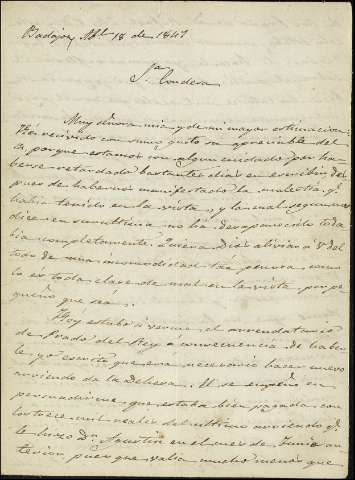 Badajoz, Ab.l 18 de 1847
S.ra Condesa
Muy Señora mia y de mi mayor estimacion:
He recivido con sumo gusto su apreciable del
porque estamos con algun cuidado por ha-
berse retardado bastantes dias en escribir des-
pues de habernos manifestado la molestia q.
habia tenido en la vista, y la cual segun me
dice en su ultima no ha desaparecido toda
bia completamente. Quiera Dios aliviar a V. del
todo de una incomodidad tan penosa como
lo es toda clase de mal en la vista por pe-
queño que sea.
Hoy estubo á verme el arrendatario
de Prado del Rey a consecuencia de haber
le yo escrito que era necesario hacer nuevo
arriendo de la Dehesa. El se empeño en
persuadirme que estaba bien pagada con
los trece mil reales del ultimo arriendo q.
le hizo D.n Agustin en el mes de Junio an-
terior pues que valia mucho menos que